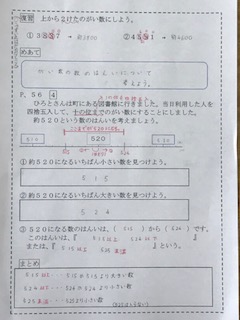 復習 上から2けたのがい数にしよう。
① 3 → 約3800
② 4 → 約4600
めあて
がい数の表すはんいについて
考えよう。
P.56 4
ひろとさんは町にある図書館に行きました。当日利用した人を
四捨五入して、十の位までのがい数にすることにしました。
約520という数のはんいを考えましょう。
510 520 530
515 525
① 約520になるいちばん小さい数を見つけよう。
515
② 約520になるいちばん大きい数を見つけよう。
524
③ 約520になる数のはんいは、( 515 )から( 524 )です。
このはんいは、『 515以上 524以下 』
または、『 515以上 525未満 』という。
まとめ
515以上 … 515か515より大きい数
524以下 … 524か524より小さい数
525未満 … 525より小さい数